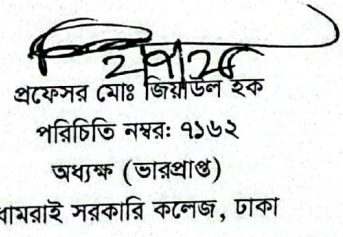 ২/৭/২৫
প্রফেসর মোঃ জিয়াউল হক
পরিচিতি নম্বর: ৭১৬২
অধ্যক্ষ (ভারপ্রাপ্ত)
ধামরাই সরকারি কলেজ, ঢাকা